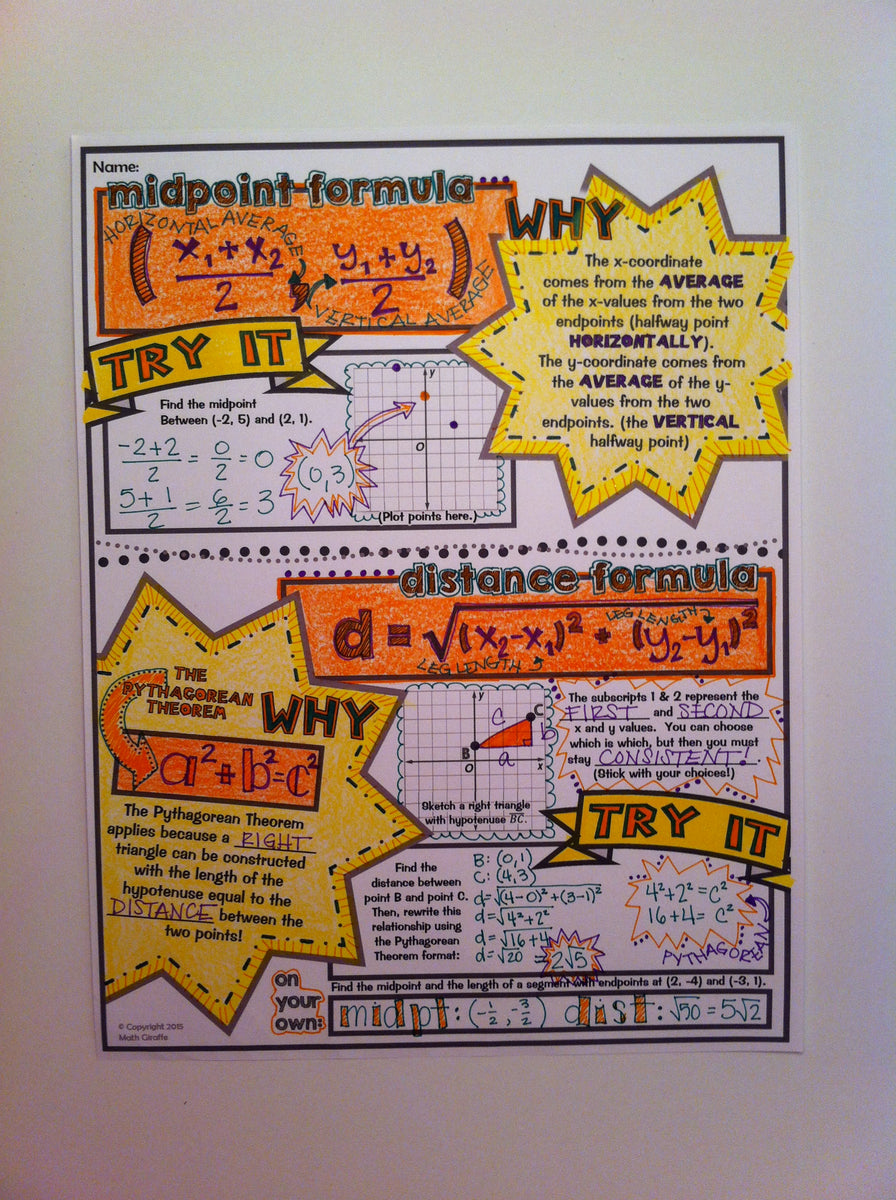 Name:
midpoint formula
HORIZONTAL AVERAGE
(x₁+x₂/2, y₁+y₂/2)
VERTICAL AVERAGE
WHY
The x-coordinate
comes from the AVERAGE
of the x-values from the two
endpoints (halfway point
HORIZONTALLY).
The y-coordinate comes from
the AVERAGE of the y-
values from the two
endpoints. (the VERTICAL
halfway point)
TRY IT
Find the midpoint
Between (-2, 5) and (2, 1).
-2+2/2 = 0/2 = 0
5+1/2 = 6/2 = 3
(0,3)
y
O
(Plot points here.)
distance formula
d = √(x₂-x₁)² + (y₂-y₁)²
LEG LENGTH
LEG LENGTH
THE
PYTHAGOREAN
THEOREM
WHY
a²+b²=c²
The Pythagorean Theorem
applies because a RIGHT
triangle can be constructed
with the length of the
hypotenuse equal to the
DISTANCE between the
two points!
y
c
C
b
B
a
O
x
Sketch a right triangle
with hypotenuse BC.
The subscripts 1 & 2 represent the
FIRST and SECOND
x and y values. You can choose
which is which, but then you must
stay CONSISTENT!.
(Stick with your choices!)
TRY IT
Find the
distance between
point B and point C.
Then, rewrite this
relationship using
the Pythagorean
Theorem format:
B: (0,1)
C: (4,3)
d=√(4-0)²+(3-1)²
d=√4²+2²
d=√16+4
d=√20 = 2√5
4²+2²=c²
16+4=c²
PYTHAGOREAN
on
your
own:
Find the midpoint and the length of a segment with endpoints at (2, -4) and (-3, 1).
midpt: (-1/2, -3/2) dist: √50 = 5√2
© Copyright 2015
Math Giraffe